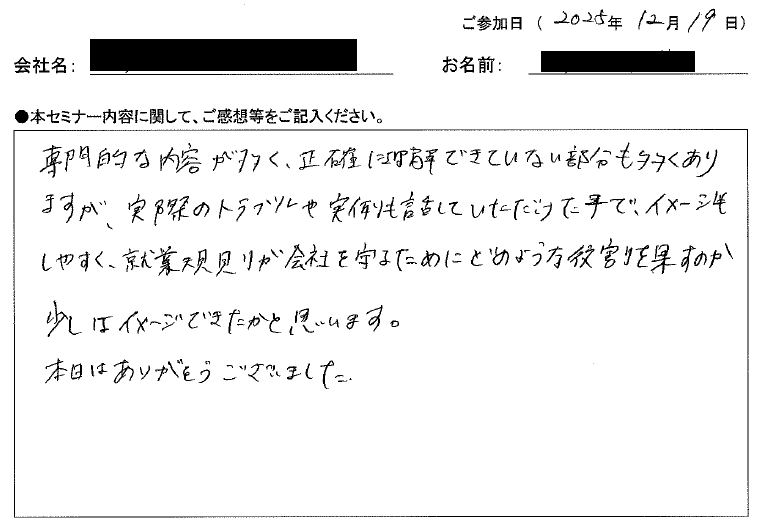 ご参加日（2025年 12月 19日）
会社名：
お名前：
●本セミナー内容に関して、ご感想等をご記入ください。
専門的な内容が多く、正確に理解できていない部分も多くあり
ますが、実際のトラブルや実例も話していただけた事で、イメージも
しやすく、就業規則が会社を守るためにどのような役割を果すのか
少しはイメージできたかと思います。
本日はありがとうございました。